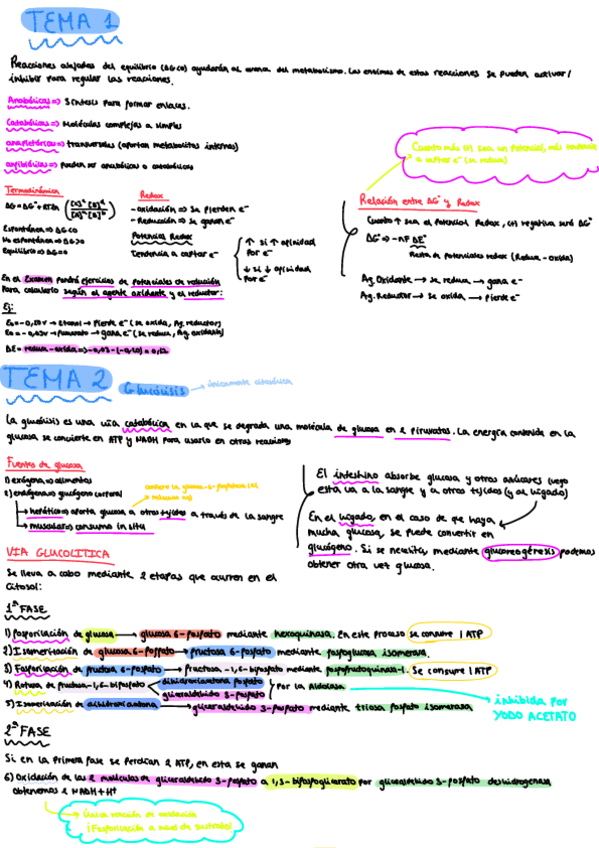 TEMA 1
Reacciones alejadas del equilibrio (ΔG<0) ayudarán al avance del metabolismo. Las enzimas de estas reacciones se pueden activar/
inhibir para regular las reacciones.
Anabólicas => Síntesis para formar enlaces.
Catabólicas => Moléculas complejas a simples
anapleróticas => transversales (aportan metabolitos internos)
anfibólicas => pueden ser anabólicas o catabólicas
Cuanto más (+) sea un potencial, más tendencia
a captar e⁻ (se reduce)
Termodinámica
Espontánea => ΔG<0
No espontánea => ΔG>0
Equilibrio => ΔG=0
Redox
- Oxidación => Se pierden e⁻
- Reducción => Se ganan e⁻
Potencial Redox
Tendencia a captar e⁻
↑ si ↑ afinidad
por e⁻
↓ si ↓ afinidad
por e⁻
Relación entre ΔG y Redox
Cuanto ↑ sea el potencial Redox, (+) negativa será ΔG°
ΔG° => -nF ΔE°
Resta de potenciales redox (Reduc - Oxida)
Ag. Oxidante → se reduce → gana e⁻
Ag. Reductor → se oxida → pierde e⁻
En el Examen pondrá ejercicios de potenciales de reducción
para calcularlo según el agente oxidante y el reductor:
Ej:
Etanol → Pierde e⁻ (se oxida, Ag. reductor)
Piruvato → gana e⁻ (se reduce, Ag. oxidante)
ΔE = reduce - oxida =>
TEMA 2
Glucólisis → únicamente citosólica
La glucólisis es una vía catabólica en la que se degrada una molécula de glucosa en 2 piruvatos. La energía contenida en la
glucosa se convierte en ATP y NADH para usarlo en otras reacciones
Fuentes de glucosa
1) exógena => alimentos
2) endógena => glucógeno corporal
hepático => aporta glucosa a otros tejidos a través de la sangre
muscular => consumo in situ
El intestino absorbe glucosa y otros azúcares luego
esta va a la sangre y a otros tejidos (y al hígado)
En el hígado, en el caso de que haya
mucha glucosa, se puede convertir en
glucógeno. Si se necesita, mediante podemos
obtener otra vez glucosa.
VIA GLUCOLITICA
Se lleva a cabo mediante 2 etapas que ocurren en el
citosol:
1ª FASE
1) Fosforilación de glucosa → glucosa 6-fosfato mediante hexoquinasa. En este proceso se consume 1 ATP
2) Isomerización de glucosa 6-fosfato → fructosa 6-fosfato mediante fosfoglucosa isomerasa.
3) Fosforilación de fructosa 6-fosfato → fructosa-1,6-bifosfato mediante fosfofructoquinasa-1. Se consume 1 ATP
4) Rotura de fructosa-1,6-bifosfato
dihidroxiacetona fosfato
gliceraldehído 3-fosfato
por la Aldolasa
5) Isomerización de dihidroxiacetona → gliceraldehído 3-fosfato mediante triosa fosfato isomerasa
inhibida por
YODO ACETATO
2ª FASE
Si en la primera fase se perdían 2 ATP, en esta se ganan
6) Oxidación de las 2 moléculas de gliceraldehído 3-fosfato a 1,3-bifosfoglicerato por gliceraldehído 3-fosfato deshidrogenasa
obtenemos 2 NADH+H⁺
Única reacción de oxidación
¡Fosforilación a nivel de sustrato!